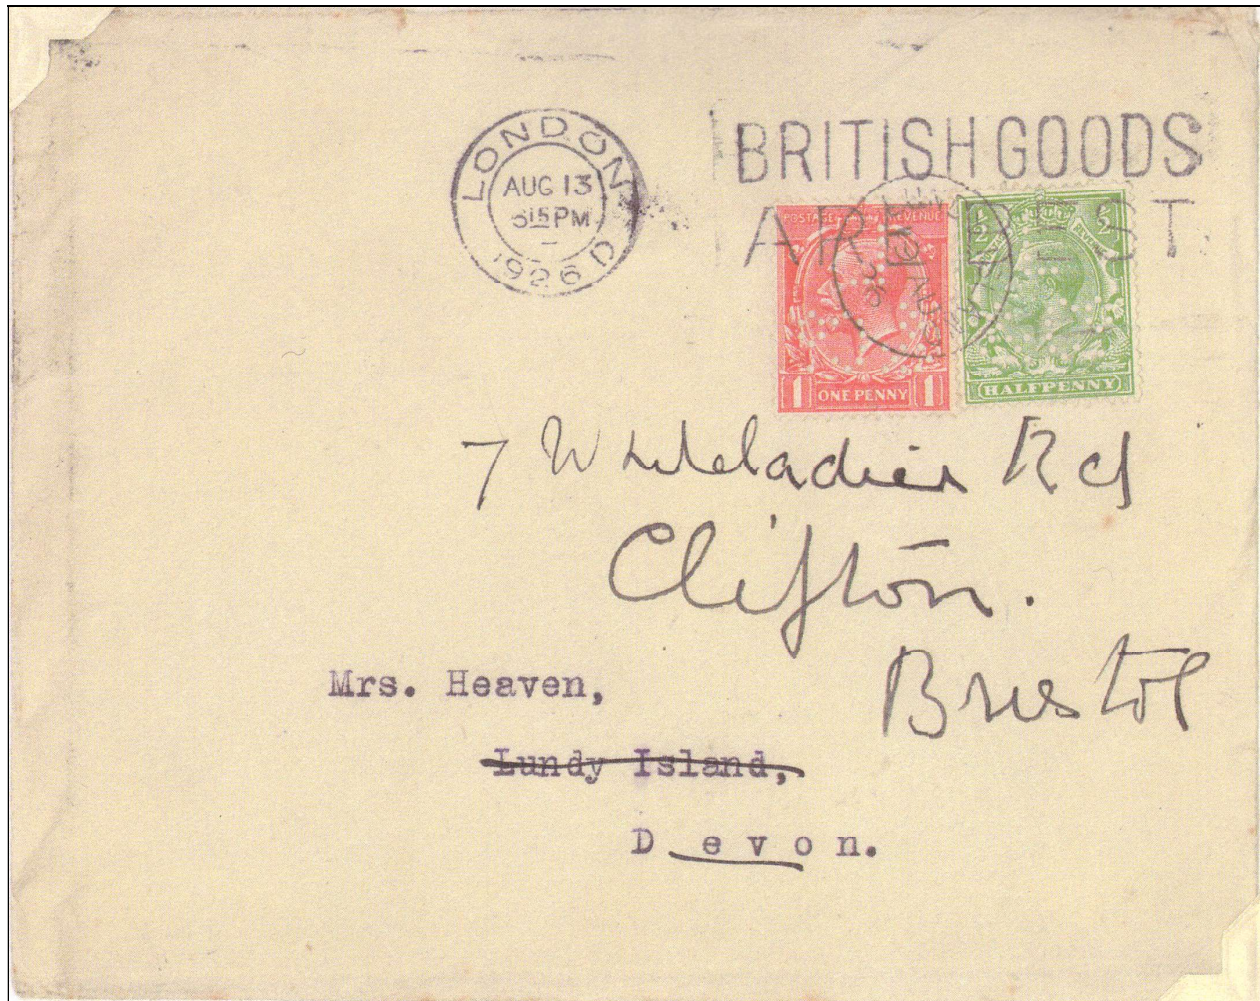 LONDON
AUG 13
615PM
1926 D
BRITISH GOODS
ARE BEST
POSTAGE REVENUE
1 ONE PENNY 1
1/2 1/2
HALFPENNY
7 Whiteladies Rd
Clifton.
Bristol
Mrs. Heaven,
Lundy Island,
Devon.